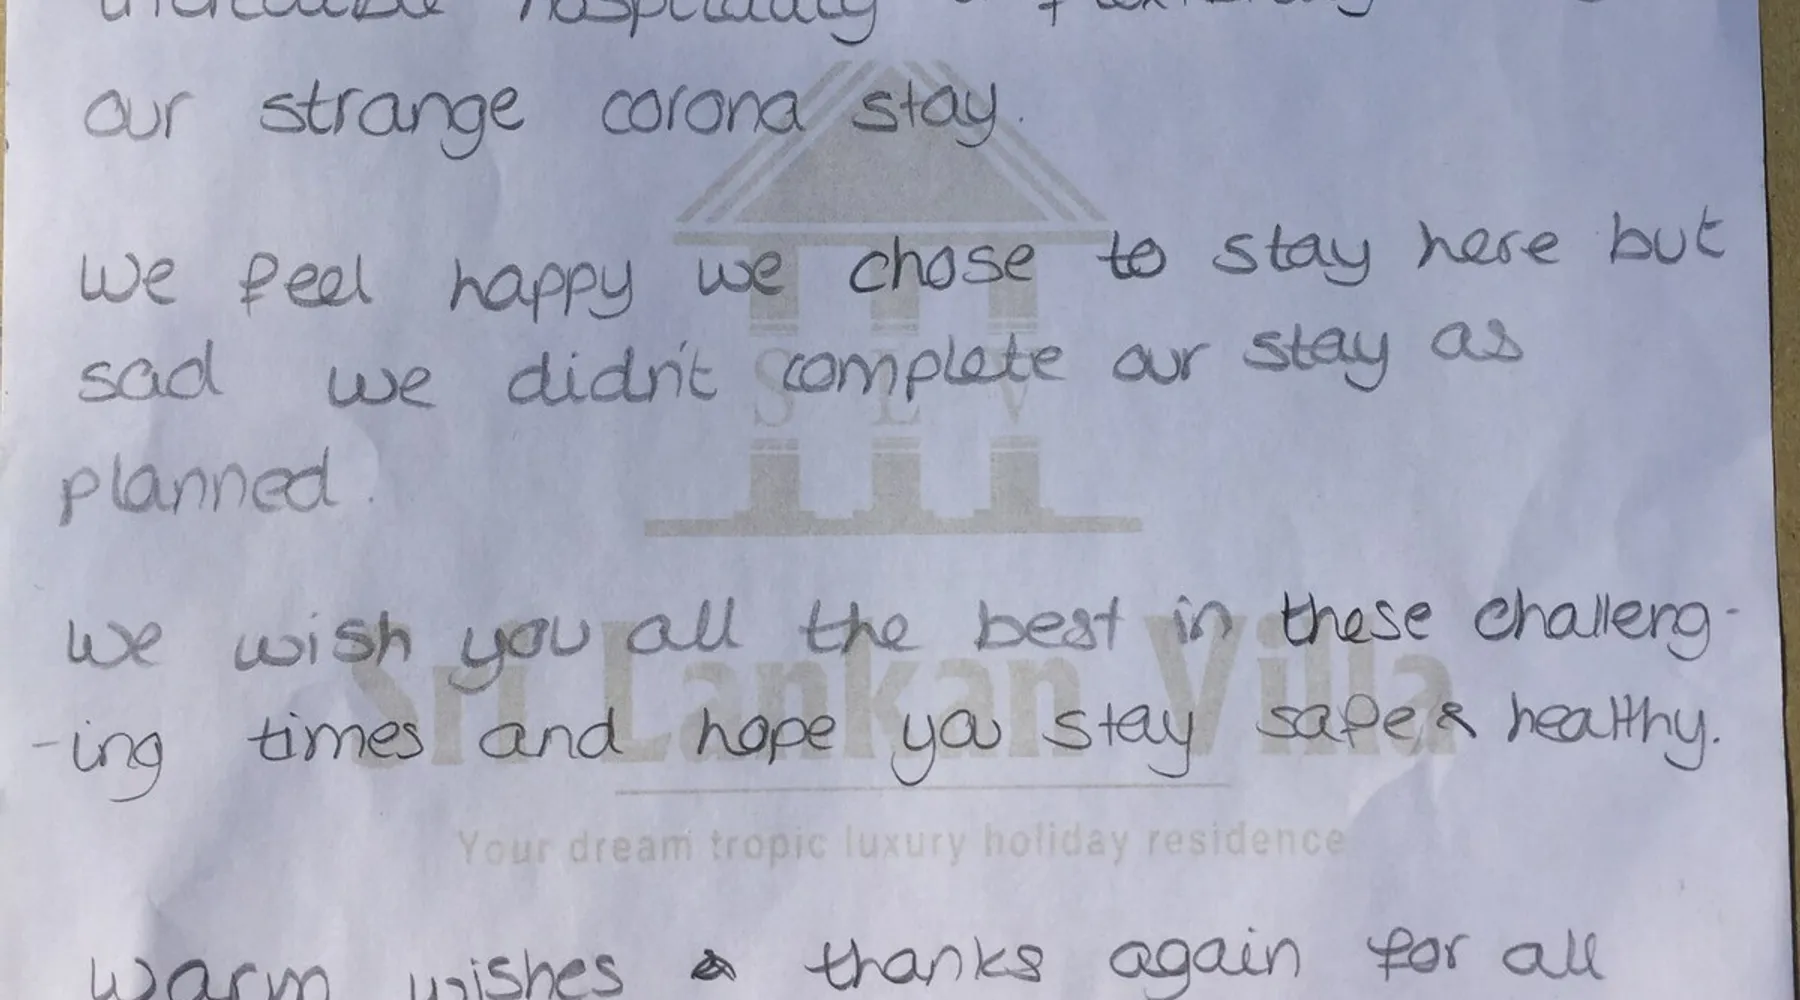 incredible hospitality & flexibility
our strange corona stay.
We feel happy we chose to stay here but
sad we didn't complete our stay as
planned.
We wish you all the best in these challeng-
-ing times and hope you stay safe & healthy.
warm wishes & thanks again for all
SLV
Sri Lankan Villa
Your dream tropic luxury holiday residence